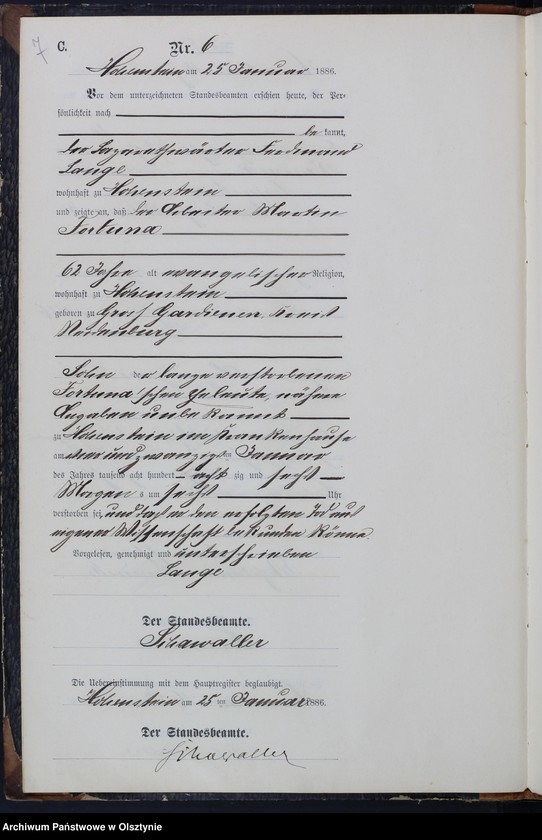 7
C.
Nr. 6
Hohenstein am 25 Januar 1886.
Vor dem unterzeichneten Standesbeamten erschien heute, der Per-
sönlichkeit nach
be kannt,
der Lazarethwärter Ferdinand
Lange
wohnhaft zu Hohenstein
und zeigte an, daß der Arbeiter Martin
Fortuna
62 Jahre alt evangelischer Religion,
wohnhaft zu Hohenstein
geboren zu Groß Gardienen, Kreis
Neidenburg
Sohn der lange verstorbenen
Fortuna'schen Eheleute, nähere
Angaben unbekannt
zu Hohenstein im Krankenhause
am undzwanzigsten Januar
des Jahres tausend acht hundert acht zig und sechs
Morgens um sechs Uhr
verstorben sei, und daß er den erfolgten Tod aus
eigener Wissenschaft bekunden könne.
Vorgelesen, genehmigt und unterschrieben
Lange
Der Standesbeamte.
Schawaller
Die Uebereinstimmung mit dem Hauptregister beglaubigt.
Hohenstein am 25 ten Januar 1886.
Der Standesbeamte.
Schawaller
Archiwum Państwowe w Olsztynie